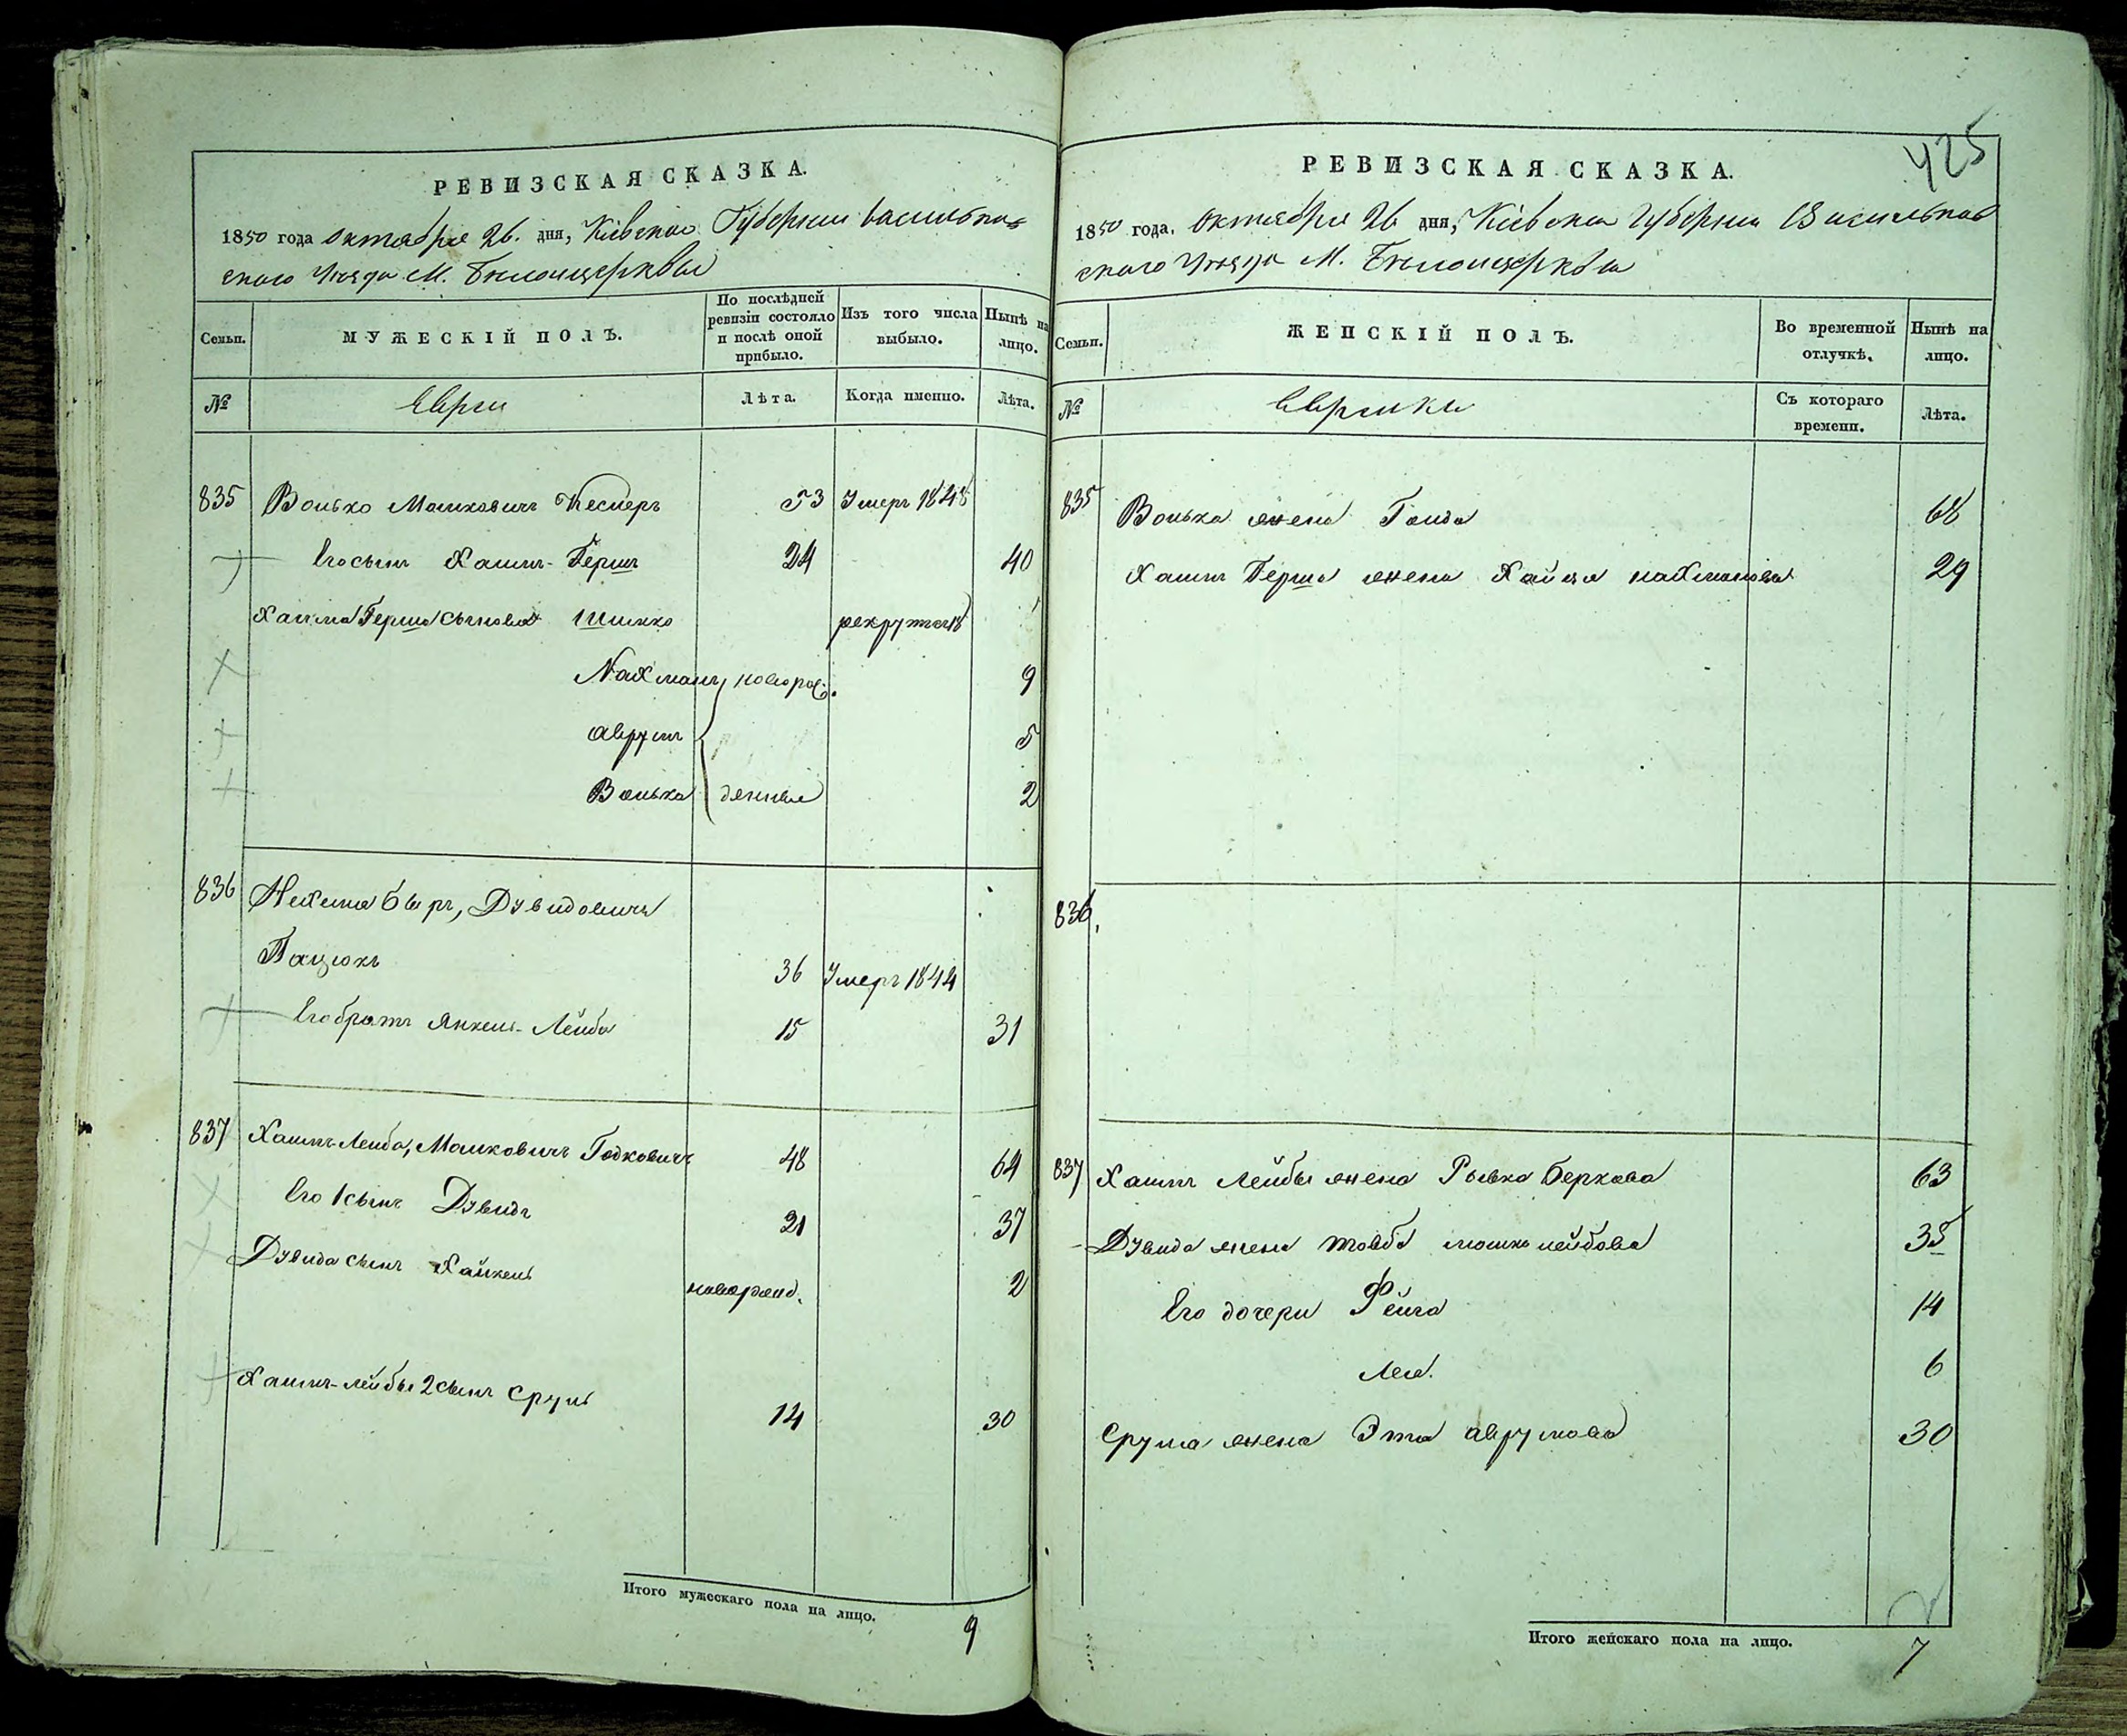 РЕВИЗСКАЯ СКАЗКА.
1850 года октября 26. дня, Кіевской Губерніи Васильков
скаго Уѣзда М. Бѣлоцерквы
Семьи.
МУЖЕСКІЙ ПОЛЪ.
По послѣдней ревизіи состояло и послѣ оной прибыло.
Изъ того числа выбыло.
Нынѣ на лицо.
№
Евреи
Лѣта.
Когда именно.
Лѣта.
835 Волько Мошковичъ 53 Умеръ 1848
Его сынъ Хаимъ-Герш 24 40
Хаима Герша сыновья Шимко рекрутъ 18
Нахманъ новорож. 9
Аврумъ 5
Волько денные 2
836 Нехема Беръ, Дувидовичъ
Пацюкъ 36 Умеръ 1844
Его братъ Янкель-Лейба 15 31
837 Хаимъ Лейба, Мошковичъ Годковичъ 48 64
Его 1 сынъ Дувидъ 21 37
Дувида сынъ Хайкель новорожд. 2
Хаимъ-лейбы 2 сынъ Сруль 14 30
Итого мужескаго пола на лицо.
9
425
РЕВИЗСКАЯ СКАЗКА.
1850 года, Октября 26 дня, Кіевской Губерніи Васильков
скаго Уѣзда М. Бѣлоцерквы
Семьи.
ЖЕНСКІЙ ПОЛЪ.
Во временной отлучкѣ.
Нынѣ на лицо.
№
Еврейки
Съ котораго времени.
Лѣта.
835 Волька жена Голда 68
Хаимъ Герша жена Хайця нахманова 29
836.
837 Хаимъ Лейбы жена Рывка Беркова 63
Дувида жена Товба мошко лейбова 35
Его дочери Фейга 14
Лея. 6
Сруля жена Эта аврумова 30
Итого женскаго пола на лицо.
7